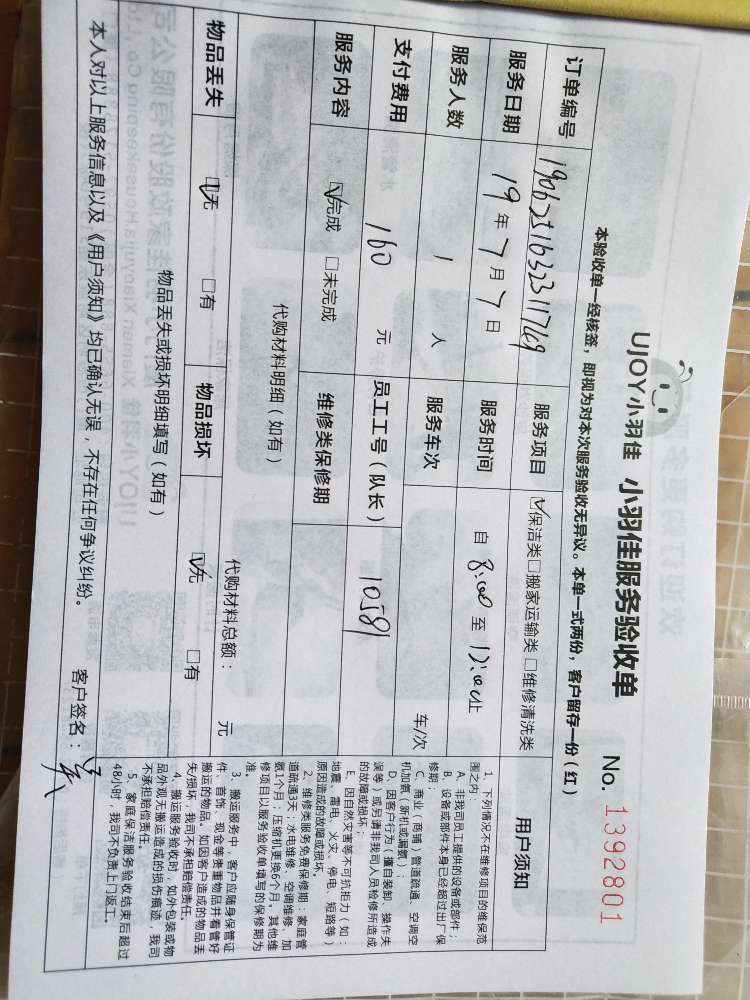 UJOY小羽佳 小羽佳服务验收单 No. 1392801
本验收单一经核签，即视为对本次服务验收无异议。本单一式两份，客户留存一份（红）
订单编号 服务项目 ☑保洁类□搬家运输类 □维修清洗类
服务日期 19 年 7 月 7 日 服务时间 自 8:00 至 12:00止
服务人数 1 人 服务车次 车/次
支付费用 160 元 员工工号（队长） 10581
服务内容 ☑完成 □未完成 维修类保修期
代购材料明细（如有） 代购材料总额： 元
物品丢失 ☑无 □有 物品损坏 ☑无 □有
物品丢失或损坏明细填写（如有）
用户须知
1、下列情况不在维修项目的维保范
围之内：
A、非我司员工提供的设备或部件；
B、设备或部件本身已经超过出厂保
修期；
C、商业（商铺）管道疏通、空调空
机加氨（新机或漏氨）；
D、因客户行为（擅自装卸、操作失
误等）或另请非我司人员检修所造成
的故障或损坏；
E、因自然灾害等不可抗拒力（如：
地震、雷电、火灾、停电、短路等）
原因造成的故障或损坏。
2、维修类服务免费保修期：家庭管
道疏通3天；水电维修、空调维修、加
氨1个月；压缩机更换6个月。其他维
修项目以服务验收单填写的保修期为
准。
3、搬运服务中，客户应随身保管证
件、首饰、现金等贵重物品并看管好
搬运的物品。如因客户造成的物品丢
失/损坏，我司不承担赔偿责任。
4、搬运服务验收时，如外包装或物
品外观无搬运造成的损伤痕迹，我司
不承担赔偿责任。
5、家庭保洁服务验收结束后超过
48小时，我司不负责上门返工。
本人对以上服务信息以及《用户须知》均已确认无误，不存在任何争议纠纷。 客户签名：